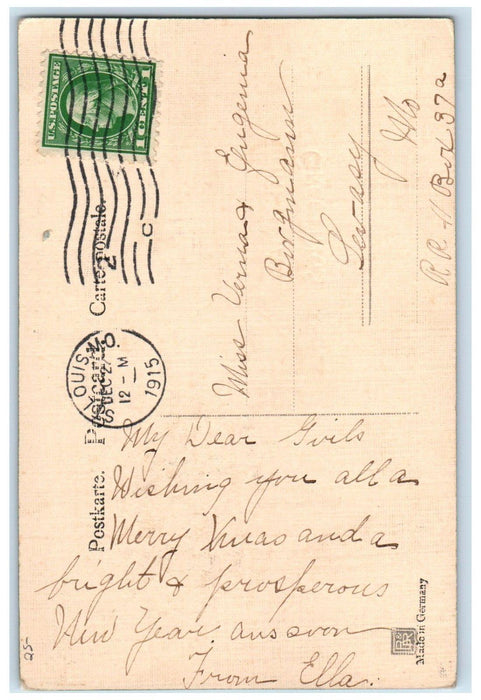 U.S. POSTAGE
1 CENT 1
ST. LOUIS, MO.
DEC 2
12 - M
1915
2
C
Postkarte. Postcard. Carte postale.
Miss Verna & Eugenia
Borgmann
Levasy
Mo
R.R. 1 Box 37a
My Dear Girls
Wishing you all a
Merry Xmas and a
bright & prosperous
New Year. ans soon
From Ella.
Made in Germany
25-